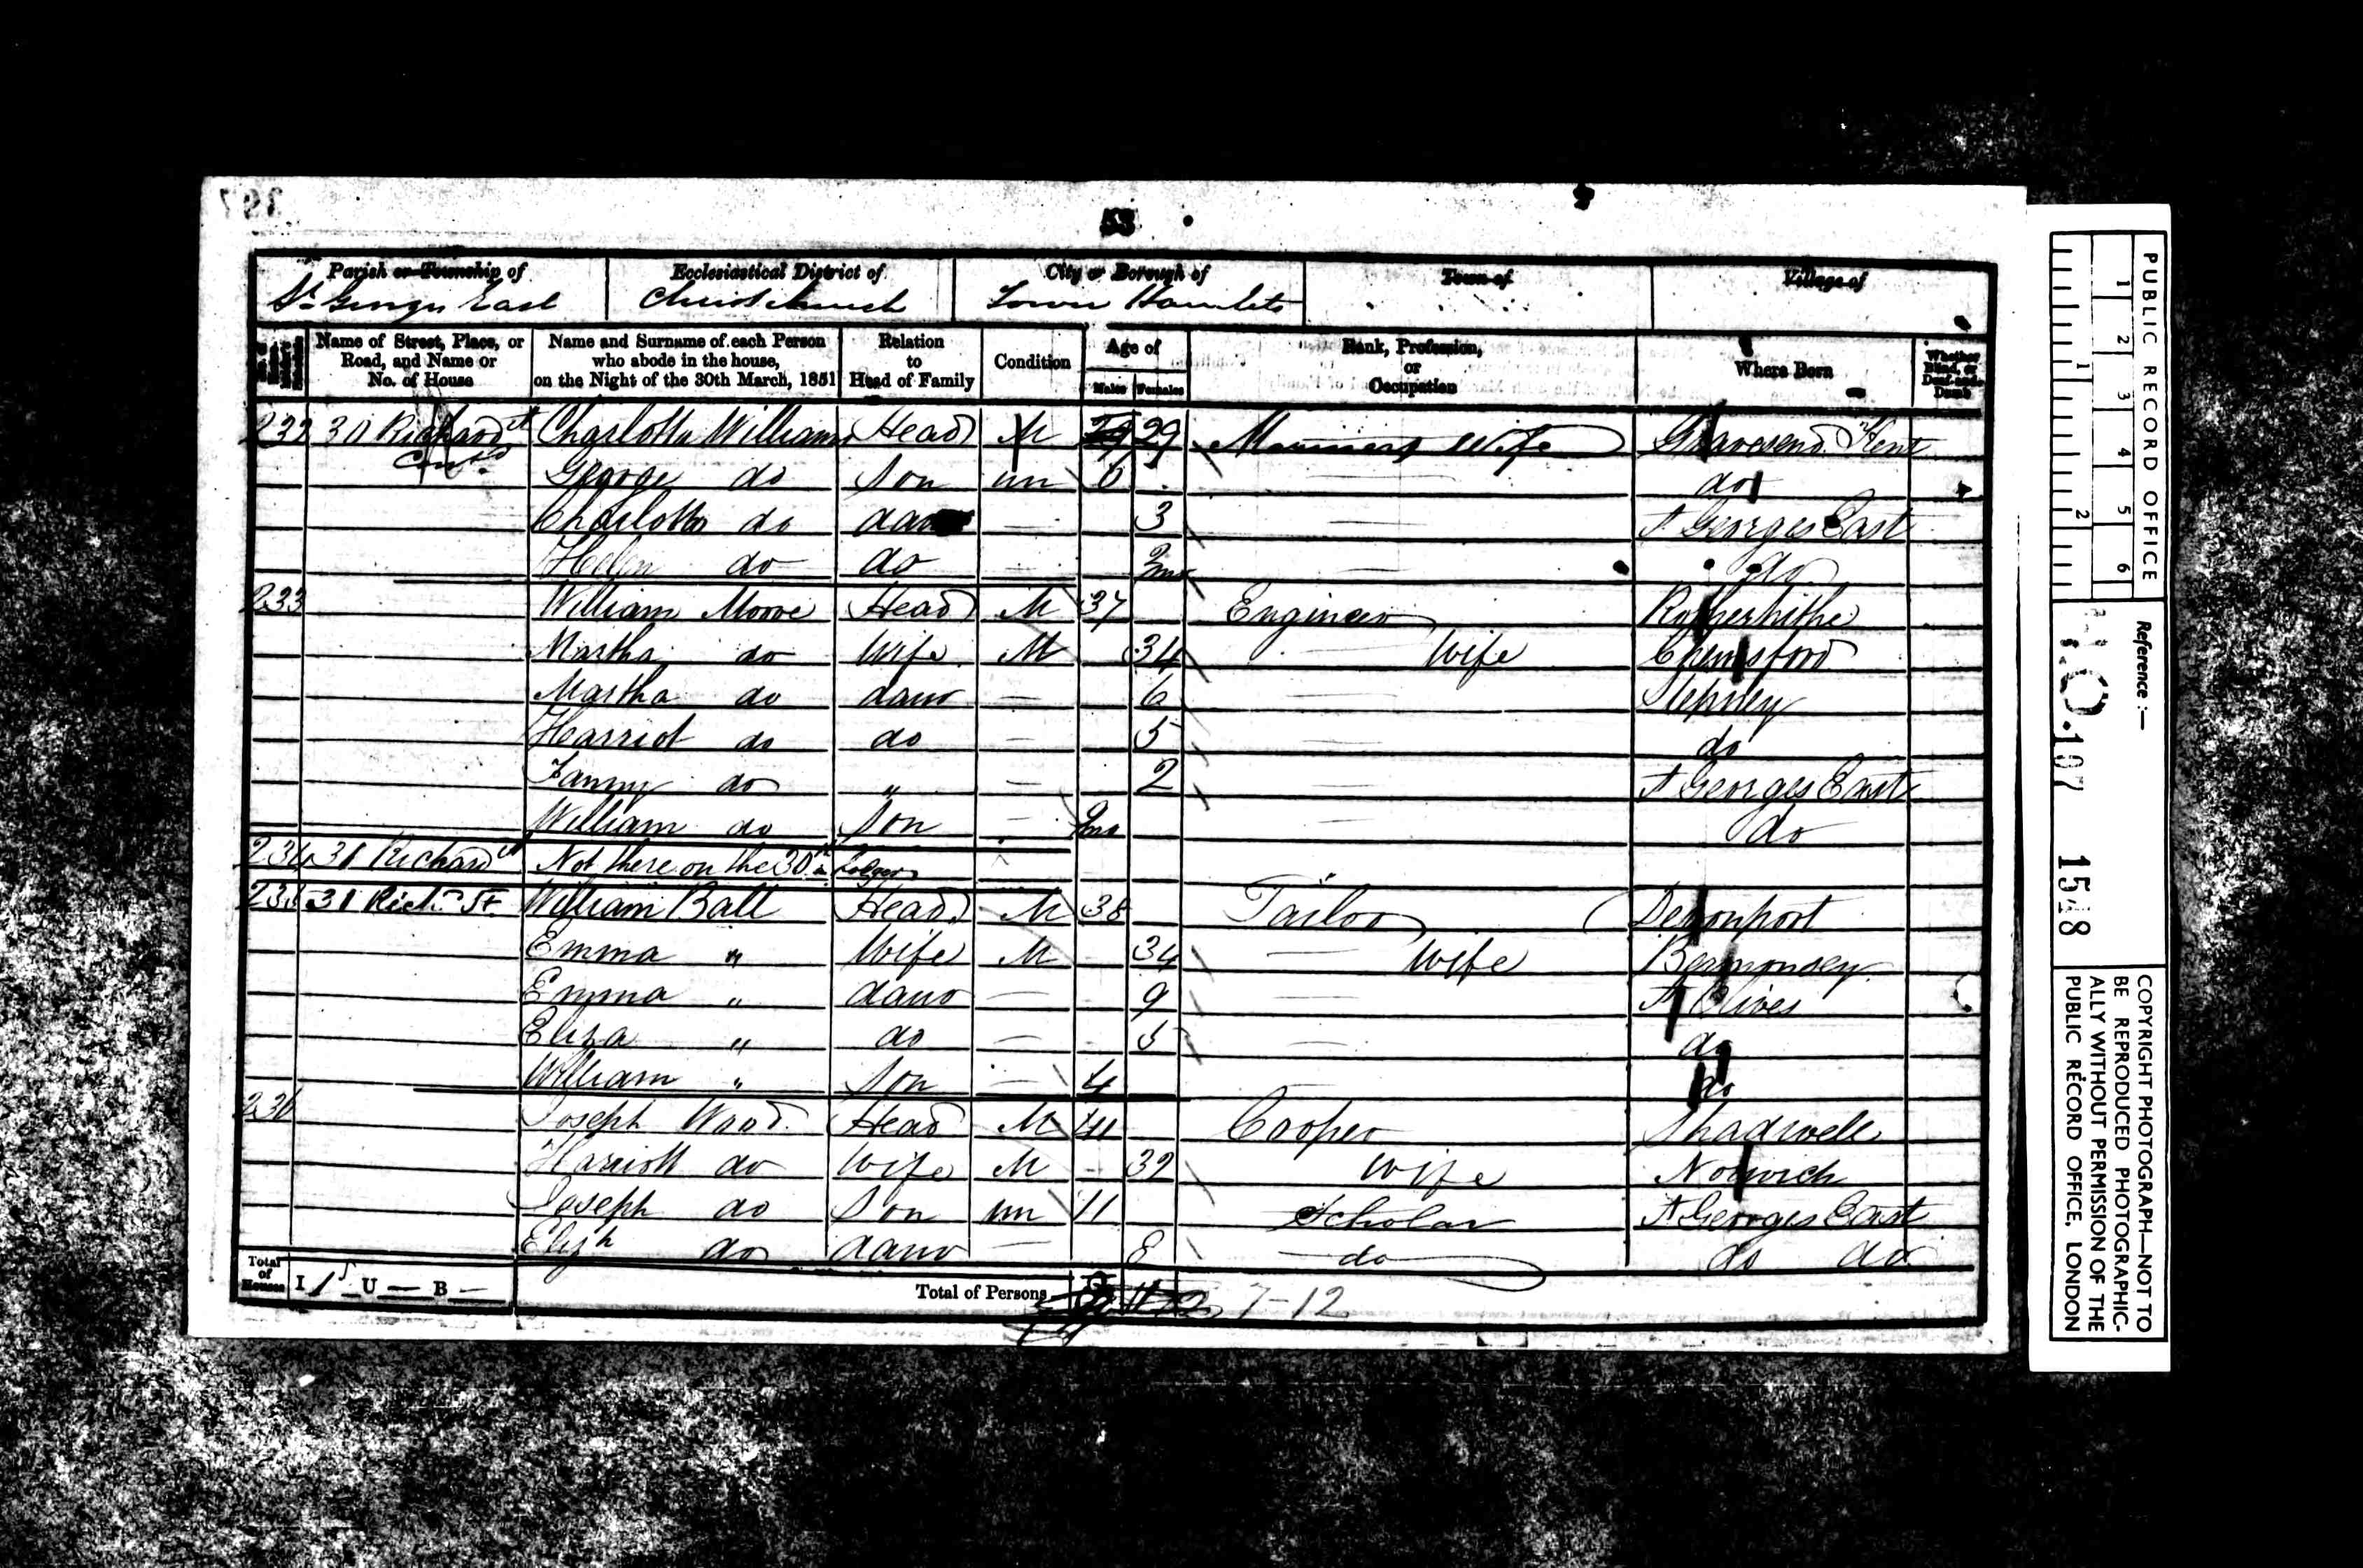 397
53
Parish or Township of Ecclesiastical District of City or Borough of Town of Village of
St. Georges East Christchurch Tower Hamlets
Name of Street, Place, or Road, and Name or No. of House
Name and Surname of each Person who abode in the house, on the Night of the 30th March, 1851
Relation to Head of Family
Condition
Age of
Males Females
Rank, Profession, or Occupation
Where Born
Whether Blind, or Deaf-and-Dumb
232 30 Richard St Charlotte Williams Head M 29 29 Mariners Wife Gravesend Kent
Contd George do Son un 6 do
Charlotte do daur 3 St Georges East
Helen do do 3mo do
233 William Moore Head M 37 Engineer Rotherhithe
Martha do Wife M 34 Wife Chemsford
Martha do daur 6 Stepney
Harriot do do 5 do
Fanny do " 2 St Georges East
William do Son do
234 31 Richard St Not there on the 30th Lodger
235 31 Richd St. William Ball Head M 38 Tailor Devonport
Emma " Wife M 34 Wife Bermonsey
Emma " daur 9 St Olives
Eliza " do 5 do
William " Son 4 do
236 Joseph Wood Head M 41 Cooper Shadwell
Harriott do Wife M 32 Wife Norwich
Joseph do Son un 11 Scholar St Georges East
Elizh do daur 8 do do do
Total of Houses I 1 U — B —
Total of Persons 7-12
PUBLIC RECORD OFFICE
1 2 3 4 5 6
1 2
Reference:—
H.O. 107 1548
COPYRIGHT PHOTOGRAPH—NOT TO
BE REPRODUCED PHOTOGRAPHIC-
ALLY WITHOUT PERMISSION OF THE
PUBLIC RECORD OFFICE, LONDON